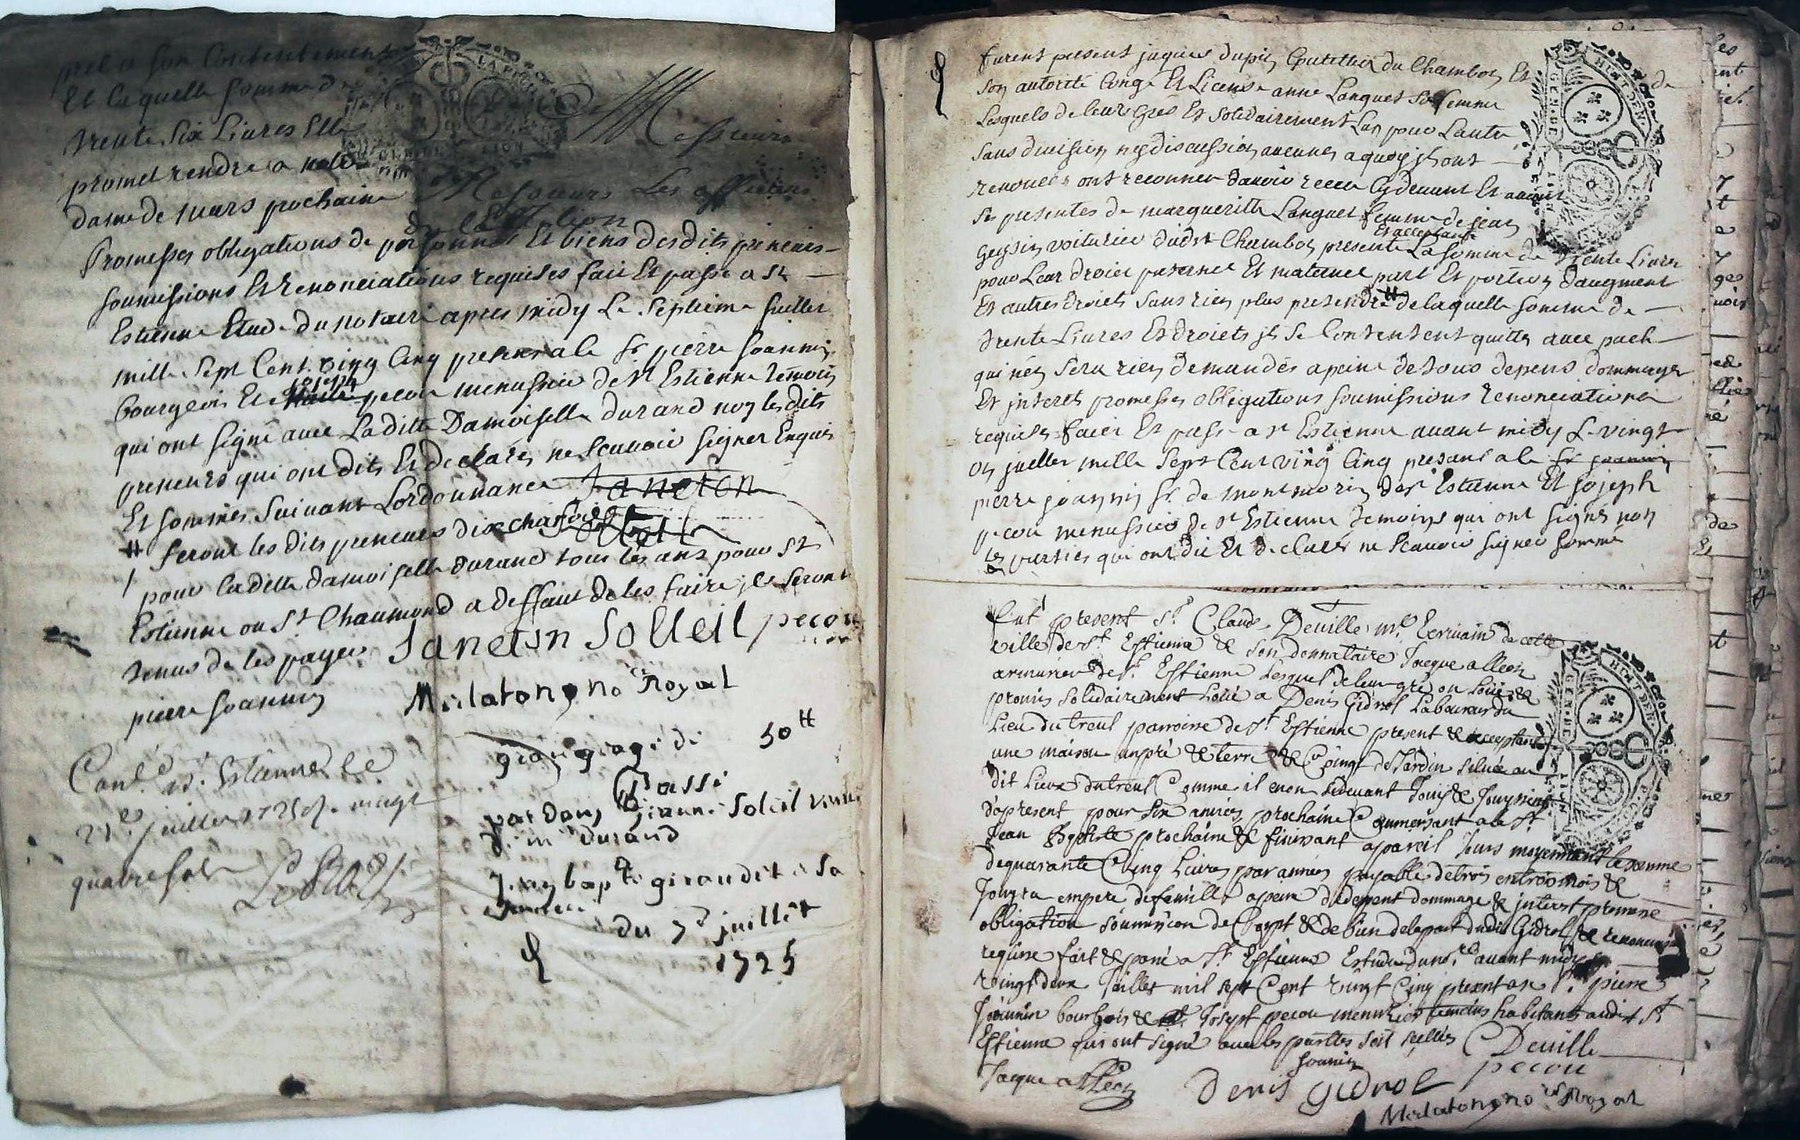 pret a son Contentement
Et laquelle somme de
trente six Livres Elle
promet rendre a notre
dame de mars prochaine
Messieurs
Messieurs Les officiers
de l'Election
Promesses obligations de personnes Et biens desdits preneurs
soumissions Et renonciations requises fait Et passé a St
Estienne Etude du notaire apres midy Le septieme juillet
mille sept Cent vingt Cinq presents a le sr pierre joannin
bourgeois Et joseph pecou menusier de St Estienne temoins
qui ont signé avec Laditte Damoiselle durand non lesdits
preneurs qui ont dits Et declarés ne scavoir signer Enquis
Et sommés suivant Lordonnance Janeton
seront les dits preneurs dix chars solleil
pour laditte damoiselle durand tous les ans pour St
Estienne ou St Chaumond a deffaut de les faire ils seront
tenus de les payer Janeton Solleil pecou
pierre joannin Mrlatongno re Royal
Conlé a St Estienne le
21e juillet 1725 R. vingt
quatre sols
grangeage de 50tt
Passé
par dam Jeanne Soleil veuve
durand
Jean bapte giraudet & sa
femme
du 7e juillet
1725
furent present jaques dupin Coutellier du Chambon Et de
son autorité Congé Et License anne Langues sa femme
Lesquels de leurs gres Et solidairement Lun pour Lautre
sans division ny discussion aucunes a quoy ils ont
renoncés ont reconneu davoir receu Cydevant Et avant
ses presentes de margueritte Langues femme de jean
Et acceptante
geyssin voiturier dudit Chambon presente La somme de trente Livres
pour Leur droict paternel Et maternel part Et portion daugment
Et autres droicts sans rien plus pretendre de laquelle somme de
trente Livres Et droicts ils se Contentent quitte avec pach
qui n'en sera rien demandés a peine de tous depens dommages
Et interets promesses obligations soumissions renonciations
requises faict Et passé a St Estienne avant midy Le vingt
un juillet mille sept Cent vingt Cinq presant a le sr joannin
pierre joannin sr de montmorin de St Estienne Et joseph
pecou menussier de St Estienne temoins qui ont signés non
les parties qui ont dit Et declarés ne scavoir signer somme
Fut present sr Claude Deville me Ecrivain de cette
ville de St Estienne & son donnataire Jacque alleon
armurier de St Estienne Lesquel de leur gré on Loüé &
promis solidairement Loüé a Denis Gidrol Laboureur du
Lieu du treul parroisse de St Estienne present & acceptant
une maison un pré & terre & Coing de Jardin située au
dit Lieux du treul Comme il en on sidevant Jouis & Jouyssent
dapresent pour six années prochaine Commersant a la St
Jean Baptiste prochaine & finissant a pareil Jours moyennant la somme
de quarante Cinq Livres par années payable de trois en trois mois &
Jouyra empere de famille a peine de depent dommage & interest promesse
obligation soumission de Corps & de bien de la part dudit Gidrol & renonciation
requise fait & passé a St Estienne Estude du nore avant midy le
vingt deux Juillet mil sept Cent vingt Cinq present au sr pierre
Joannin bourgois & Joseph pecou menuzier temoins habitants audit St
Estienne qui ont signé avec les parties soit scelles Deville
Jacque alleon joannin Denis gidrol pecou
Mrlatongno re Royal